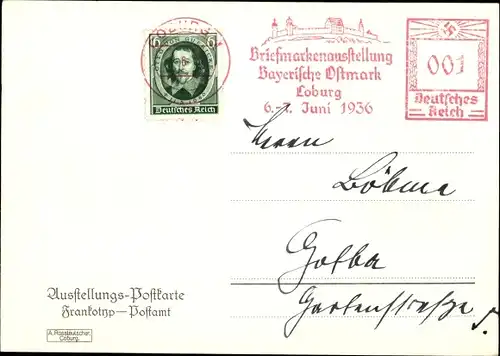 COBURG
6
Deutsches Reich
Briefmarkenausstellung
Bayerische Ostmark
Coburg
6.-7. Juni 1936
001
Deutsches
Reich
Herrn
Böhme
Gotha
Gartenstraße 5.
Ausstellungs-Postkarte
Frankotyp—Postamt
A. Rossteutscher,
Coburg.